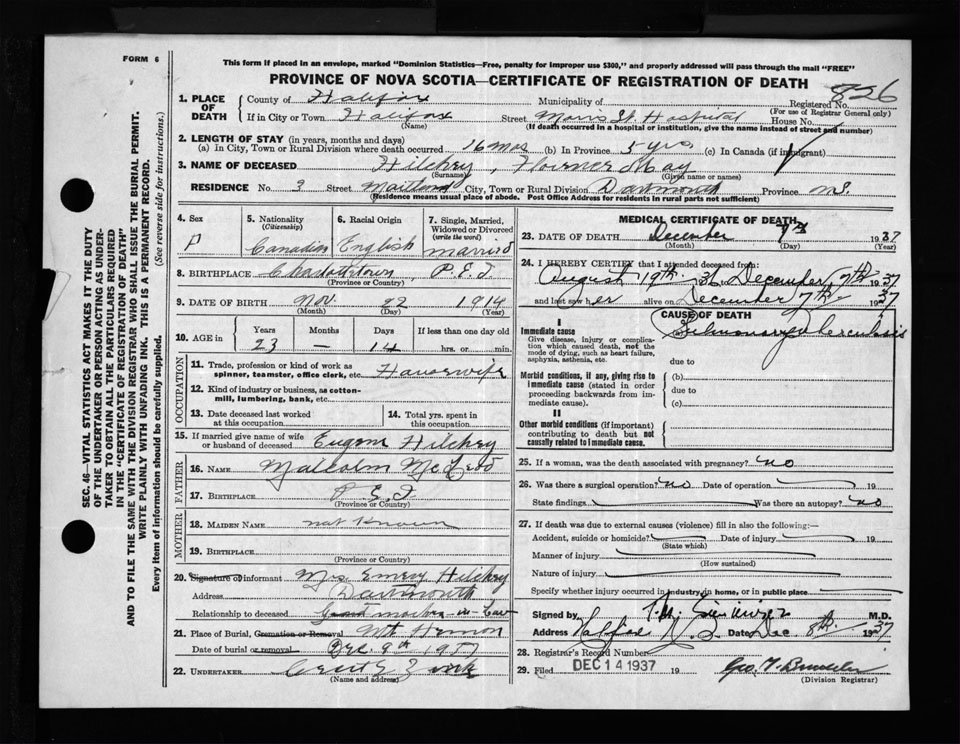 FORM 6
This form if placed in an envelope, marked "Dominion Statistics—Free, penalty for improper use $300," and properly addressed will pass through the mail "FREE"
PROVINCE OF NOVA SCOTIA—CERTIFICATE OF REGISTRATION OF DEATH
826
1. PLACE OF DEATH
County of Halifax Municipality of Registered No.
(For use of Registrar General only)
If in City or Town Halifax Street Morris St. Hospital House No.
(Name) (If death occurred in a hospital or institution, give the name instead of street and number)
2. LENGTH OF STAY (in years, months and days)
(a) In City, Town or Rural Division where death occurred 16 mos (b) In Province 5 yrs. (c) In Canada (if immigrant)
3. NAME OF DECEASED Hilchey, Florence May
(Surname) (Given name or names)
RESIDENCE No. 3 Street Maitland City, Town or Rural Division Dartmouth Province N.S.
(Residence means usual place of abode. Post Office Address for residents in rural parts not sufficient)
SEC. 46—VITAL STATISTICS ACT MAKES IT THE DUTY
OF THE UNDERTAKER OR PERSON ACTING AS UNDER-
TAKER TO OBTAIN ALL THE PARTICULARS REQUIRED
IN THE "CERTIFICATE OF REGISTRATION OF DEATH"
AND TO FILE THE SAME WITH THE DIVISION REGISTRAR WHO SHALL ISSUE THE BURIAL PERMIT.
WRITE PLAINLY WITH UNFADING INK. THIS IS A PERMANENT RECORD.
Every item of Information should be carefully supplied. (See reverse side for instructions.)
4. Sex
5. Nationality (Citizenship) Canadian
6. Racial Origin English
7. Single, Married, Widowed or Divorced (write the word) married
8. BIRTHPLACE Charlottetown, P.E.I
(Province or Country)
9. DATE OF BIRTH Nov. 22 1914
(Month) (Day) (Year)
10. AGE in Years Months Days If less than one day old
23 — 14 hrs. or min.
OCCUPATION
11. Trade, profession or kind of work as spinner, teamster, office clerk, etc. Housewife
12. Kind of industry or business, as cotton-mill, lumbering, bank, etc.
13. Date deceased last worked at this occupation
14. Total yrs. spent in this occupation
15. If married give name of wife or husband of deceased Hilchey
FATHER
16. NAME Malcolm McLeod
17. BIRTHPLACE P.E.I
(Province or Country)
MOTHER
18. MAIDEN NAME not Known
19. BIRTHPLACE
(Province or Country)
20. Signature of informant Mrs Emery Hilchey
Address Dartmouth
Relationship to deceased mother-in-law
21. Place of Burial, Cremation or Removal Mt Hermon
Date of burial or removal Dec. 9th 1937
22. UNDERTAKER Zink
(Name and address)
MEDICAL CERTIFICATE OF DEATH
23. DATE OF DEATH December 7th 1937
(Month) (Day) (Year)
24. I HEREBY CERTIFY that I attended deceased from:
August 19th 36 December, 7th 1937
and last saw her alive on December 7th 1937
CAUSE OF DEATH
I
Immediate cause Pulmonary Tuberculosis
Give disease, injury or complication which caused death, not the mode of dying, such as heart failure, asphyxia, asthenia, etc.
due to
Morbid conditions, if any, giving rise to immediate cause (stated in order proceeding backwards from immediate cause).
(b)
due to
(c)
II
Other morbid conditions (if important) contributing to death but not causally related to Immediate cause.
25. If a woman, was the death associated with pregnancy? no
26. Was there a surgical operation? no Date of operation 19
State findings Was there an autopsy? no
27. If death was due to external causes (violence) fill in also the following:—
Accident, suicide or homicide? Date of injury 19
(State which)
Manner of injury
(How sustained)
Nature of injury
Specify whether injury occurred in industry, in home, or in public place
Signed by M.D.
Address Halifax N.S. Date Dec. 8th 1937
28. Registrar's Record Number
29. Filed DEC 14 1937 19 Geo. T.
(Division Registrar)